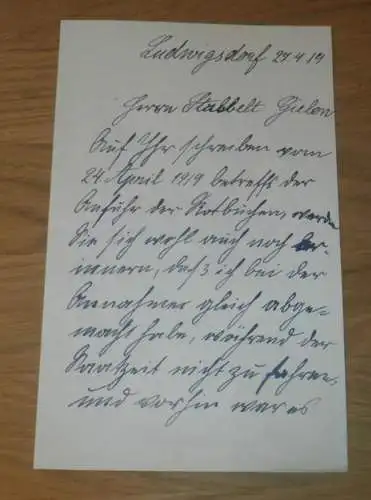 Ludwigsdorf 27.4.19
Herrn Stabbelt Gielow
Auf Ihr schreiben vom
24. April 1919 betreffs der
Anfuhr der Rotbuchen, werden
Sie sich wohl auch noch er-
innern, daß ich bei der
Annahme gleich abge-
macht habe, während der
Saatzeit nicht zu fahren,
und vorhin war es